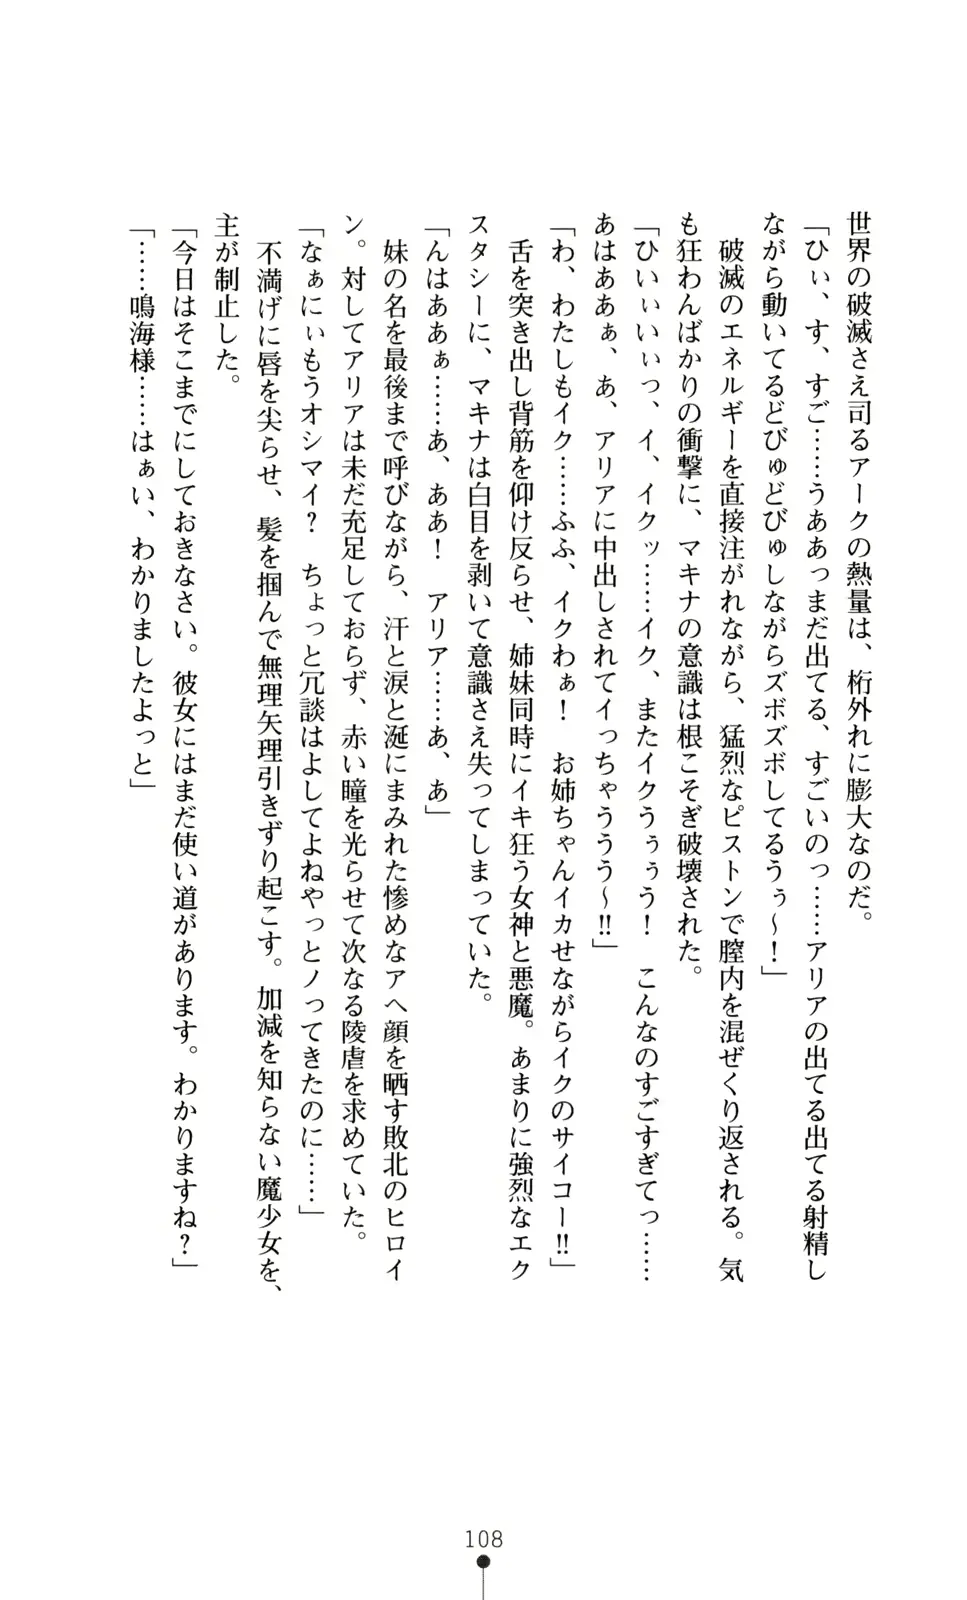 世界の破滅さえ司るアークの熱量は、桁外れに膨大なのだ。
「ひぃ、す、すご……うああっまだ出てる、すごいのっ……アリアの出てる出てる射精し
ながら動いてるどびゅどびゅしながらズボズボしてるうぅ～！」
破滅のエネルギーを直接注がれながら、猛烈なピストンで膣内を混ぜくり返される。気
も狂わんばかりの衝撃に、マキナの意識は根こそぎ破壊された。
「ひいぃいぃっ、イ、イクッ……イク、またイクうぅぅう！　こんなのすごすぎてっ……
あはああぁ、あ、アリアに中出しされてイっちゃううう～‼」
「わ、わたしもイク……ふふ、イクわぁ！　お姉ちゃんイカせながらイクのサイコー‼」
舌を突き出し背筋を仰け反らせ、姉妹同時にイキ狂う女神と悪魔。あまりに強烈なエク
スタシーに、マキナは白目を剥いて意識さえ失ってしまっていた。
「んはああぁ……あ、ああ！　アリア……あ、あ」
妹の名を最後まで呼びながら、汗と涙と涎にまみれた惨めなアヘ顔を晒す敗北のヒロイ
ン。対してアリアは未だ充足しておらず、赤い瞳を光らせて次なる陵虐を求めていた。
「なぁにぃもうオシマイ？　ちょっと冗談はよしてよねやっとノってきたのに……」
不満げに唇を尖らせ、髪を掴んで無理矢理引きずり起こす。加減を知らない魔少女を、
主が制止した。
「今日はそこまでにしておきなさい。彼女にはまだ使い道があります。わかりますね？」
「……鳴海様……はぁい、わかりましたよっと」
108